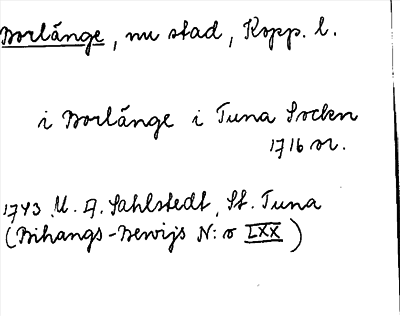 Borlänge, nu stad, Kopp. l.
i Borlänge i Tuna Sockn
1716 or.
1743 M. A. Sahlstedt, St. Tuna
(Bihangs-Bewijs N:o LXX)